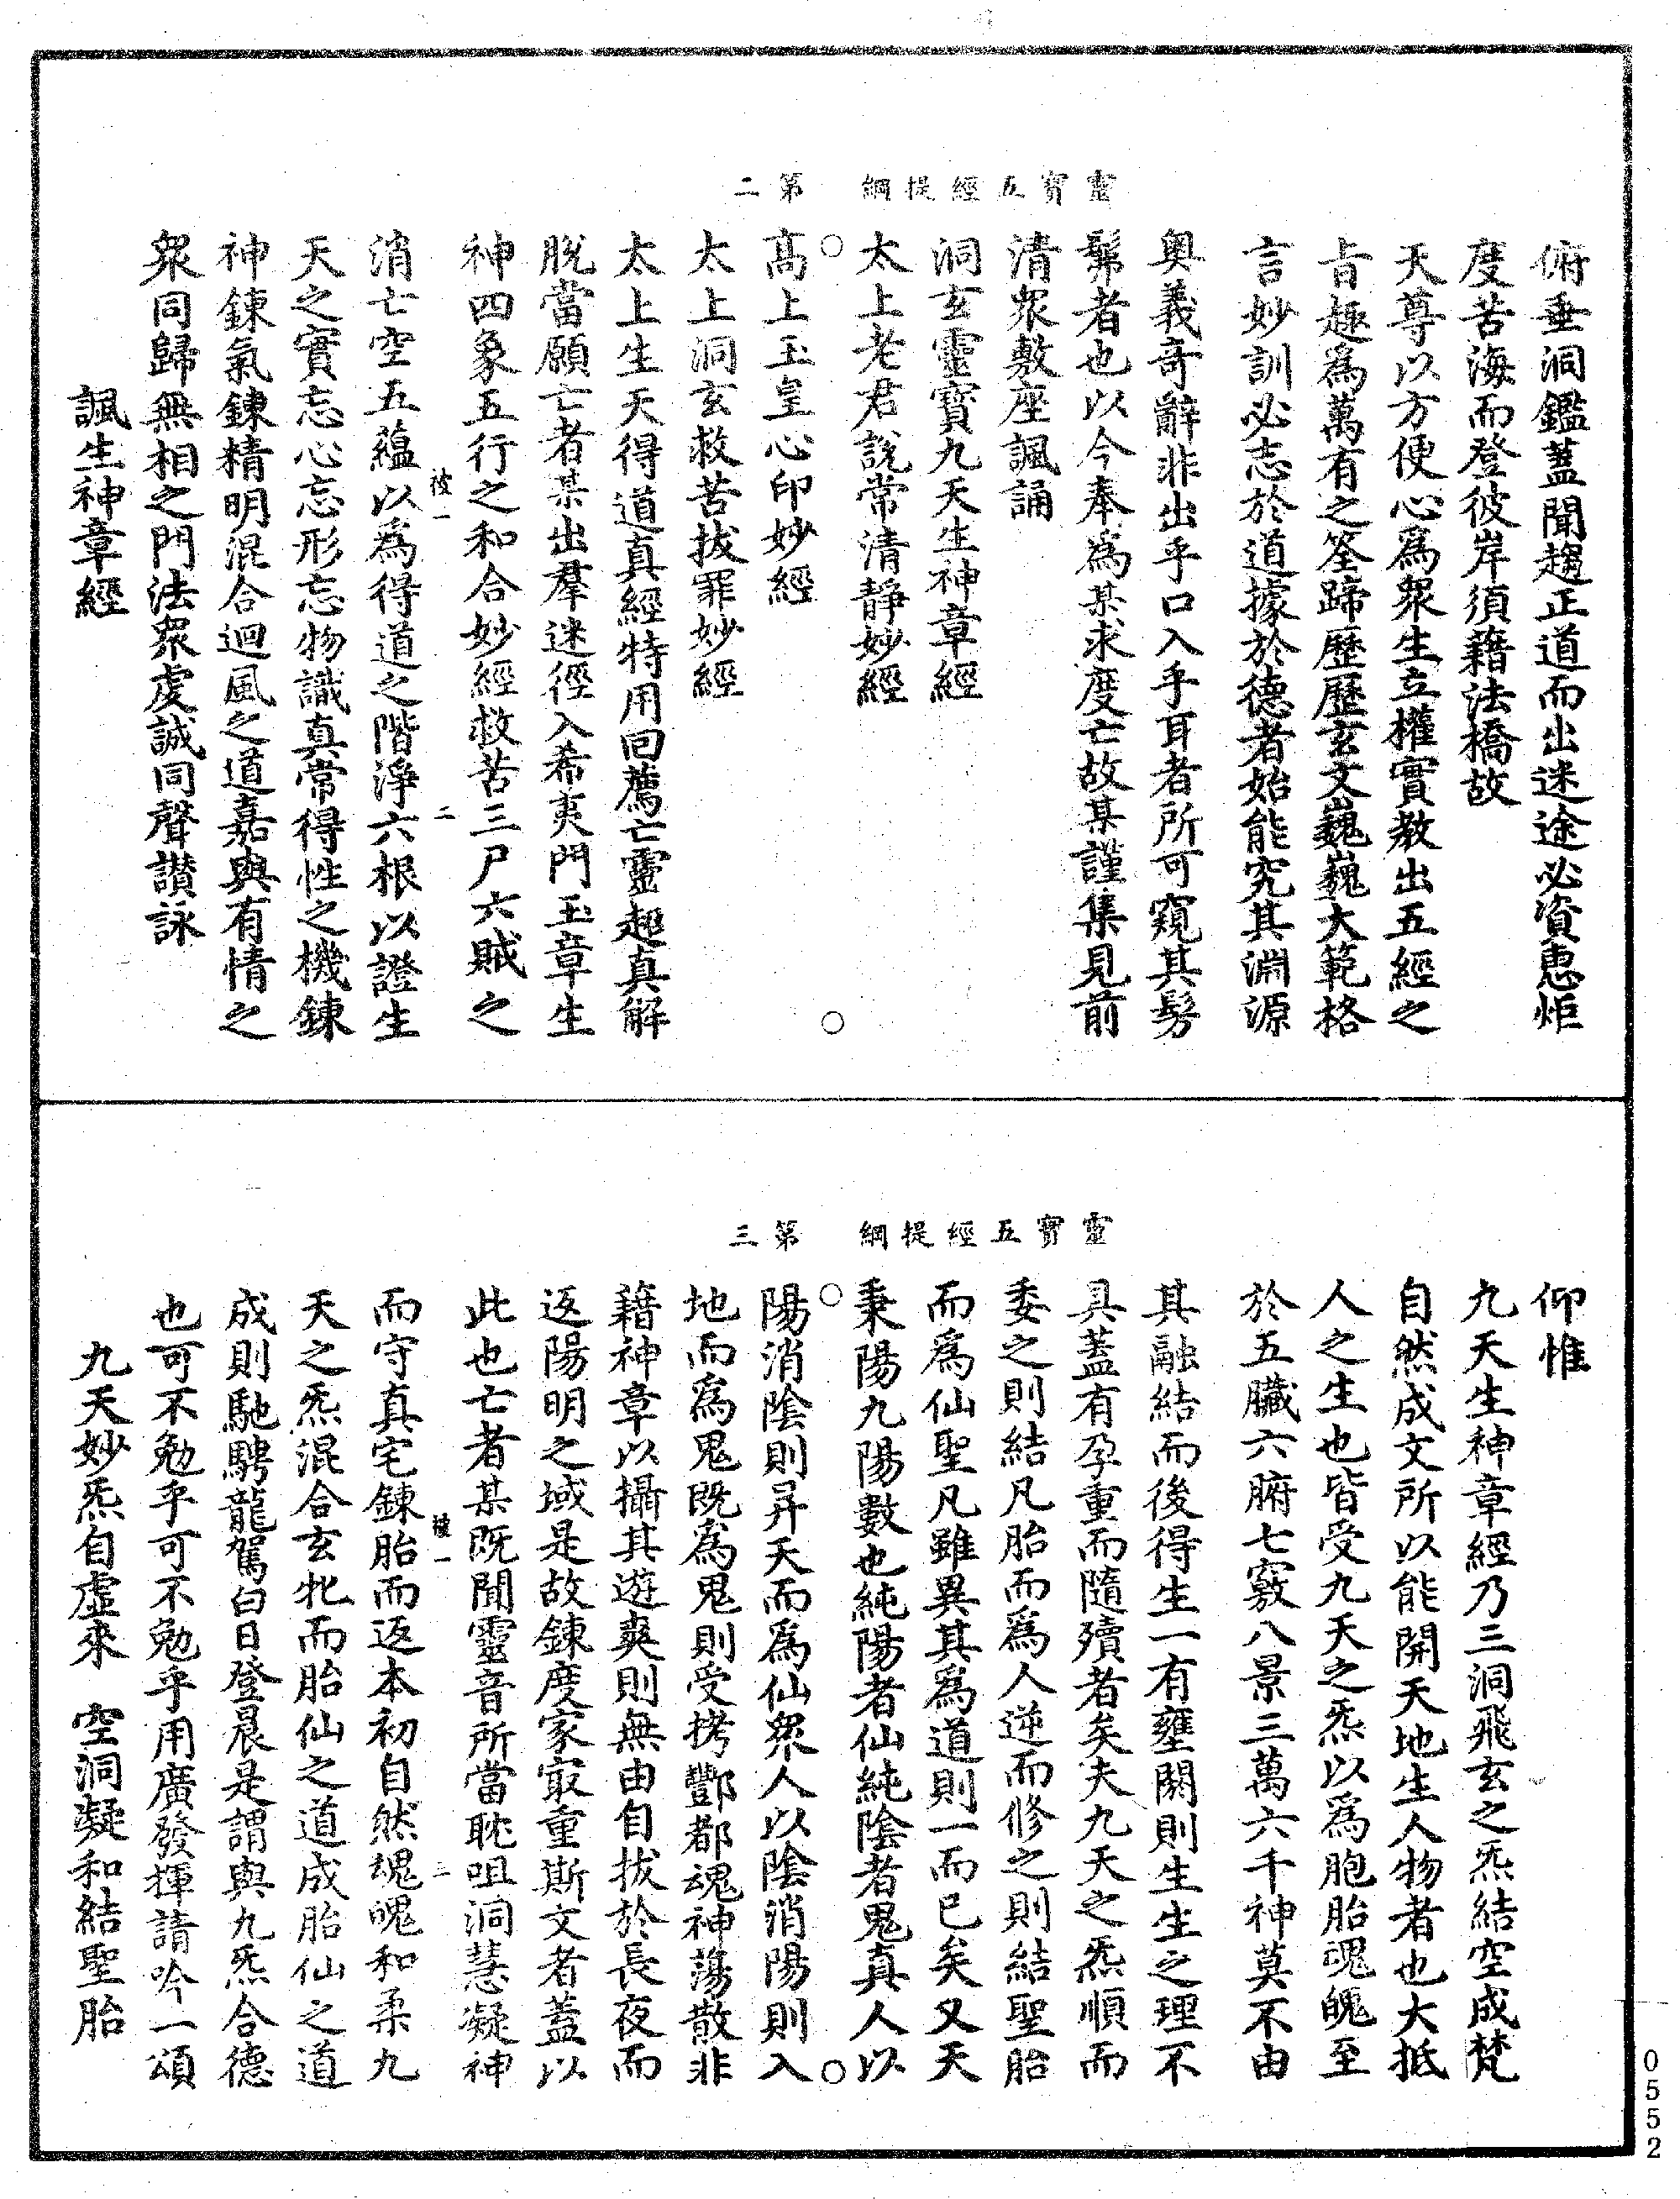 靈寶五經提綱　第二
俯垂洞鑑蓋聞趨正道而出迷途必資惠炬
度苦海而登彼岸須藉法橋故
天尊以方便心為衆生立權實教出五經之
旨趣為萬有之筌蹄歷歷玄文巍巍大範格
言妙訓必志於道據於德者始能究其淵源
奧義奇辭非出乎口入乎耳者所可窺其髣
髴者也以今奉為某求度亡故某謹集見前
清衆敷座諷誦
洞玄靈寶九天生神章經
太上老君說常清靜妙經
高上玉皇心印妙經
太上洞玄救苦拔罪妙經
太上生天得道真經特用回薦亡靈超真解
脫當願亡者某出羣迷徑入希夷門玉章生
神四象五行之和合妙經救苦三尸六賊之
消亡空五蘊以為得道之階淨六根以證生
天之實忘心忘形忘物識真常得性之機鍊
神鍊氣鍊精明混合迴風之道嘉與有情之
衆同歸無相之門法衆虔誠同聲讚詠
諷生神章經
靈寶五經提綱　第三
仰惟
九天生神章經乃三洞飛玄之炁結空成梵
自然成文所以能開天地生人物者也大抵
人之生也皆受九天之炁以為胞胎魂魄至
於五臟六腑七竅八景三萬六千神莫不由
其融結而後得生一有壅閼則生生之理不
具蓋有孕重而隨殰者矣夫九天之炁順而
委之則結凡胎而為人逆而修之則結聖胎
而為仙聖凡雖異其為道則一而已矣又天
秉陽九陽數也純陽者仙純陰者鬼真人以
陽消陰則昇天而為仙衆人以陰消陽則入
地而為鬼既為鬼則受拷酆都魂神蕩散非
藉神章以攝其遊爽則無由自拔於長夜而
返陽明之域是故鍊度家㝡重斯文者蓋以
此也亡者某既聞靈音所當耽咀洞慧凝神
而守真宅鍊胎而返本初自然魂魄和柔九
天之炁混合玄牝而胎仙之道成胎仙之道
成則馳騁龍駕白日登晨是謂與九炁合德
也可不勉乎可不勉乎用廣發揮請吟一頌
九天妙炁自虛來　空洞凝和結聖胎
0552